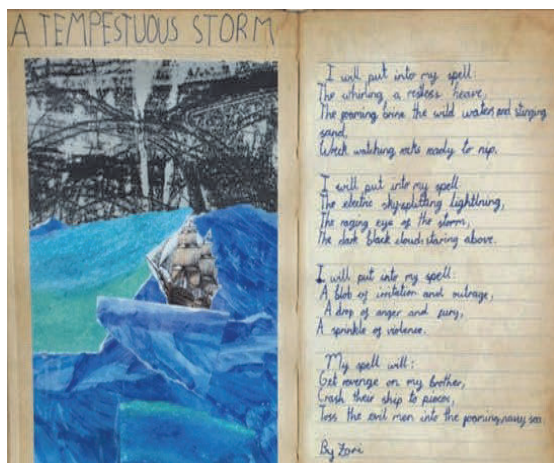 A TEMPESTUOUS STORM
I will put into my spell:
The whirling a restless heave,
The foaming brine the wild waters and stinging
sand,
Wreck watching rocks ready to nip.
I will put into my spell
The electric sky-splitting lightning,
The raging eye of the storm,
The dark black clouds staring above.
I will put into my spell:
A blob of irritation and outrage,
A drop of anger and fury,
A sprinkle of violence.
My spell will:
Get revenge on my brother,
Crash their ship to pieces,
Toss the evil men into the foaming, sea.
By